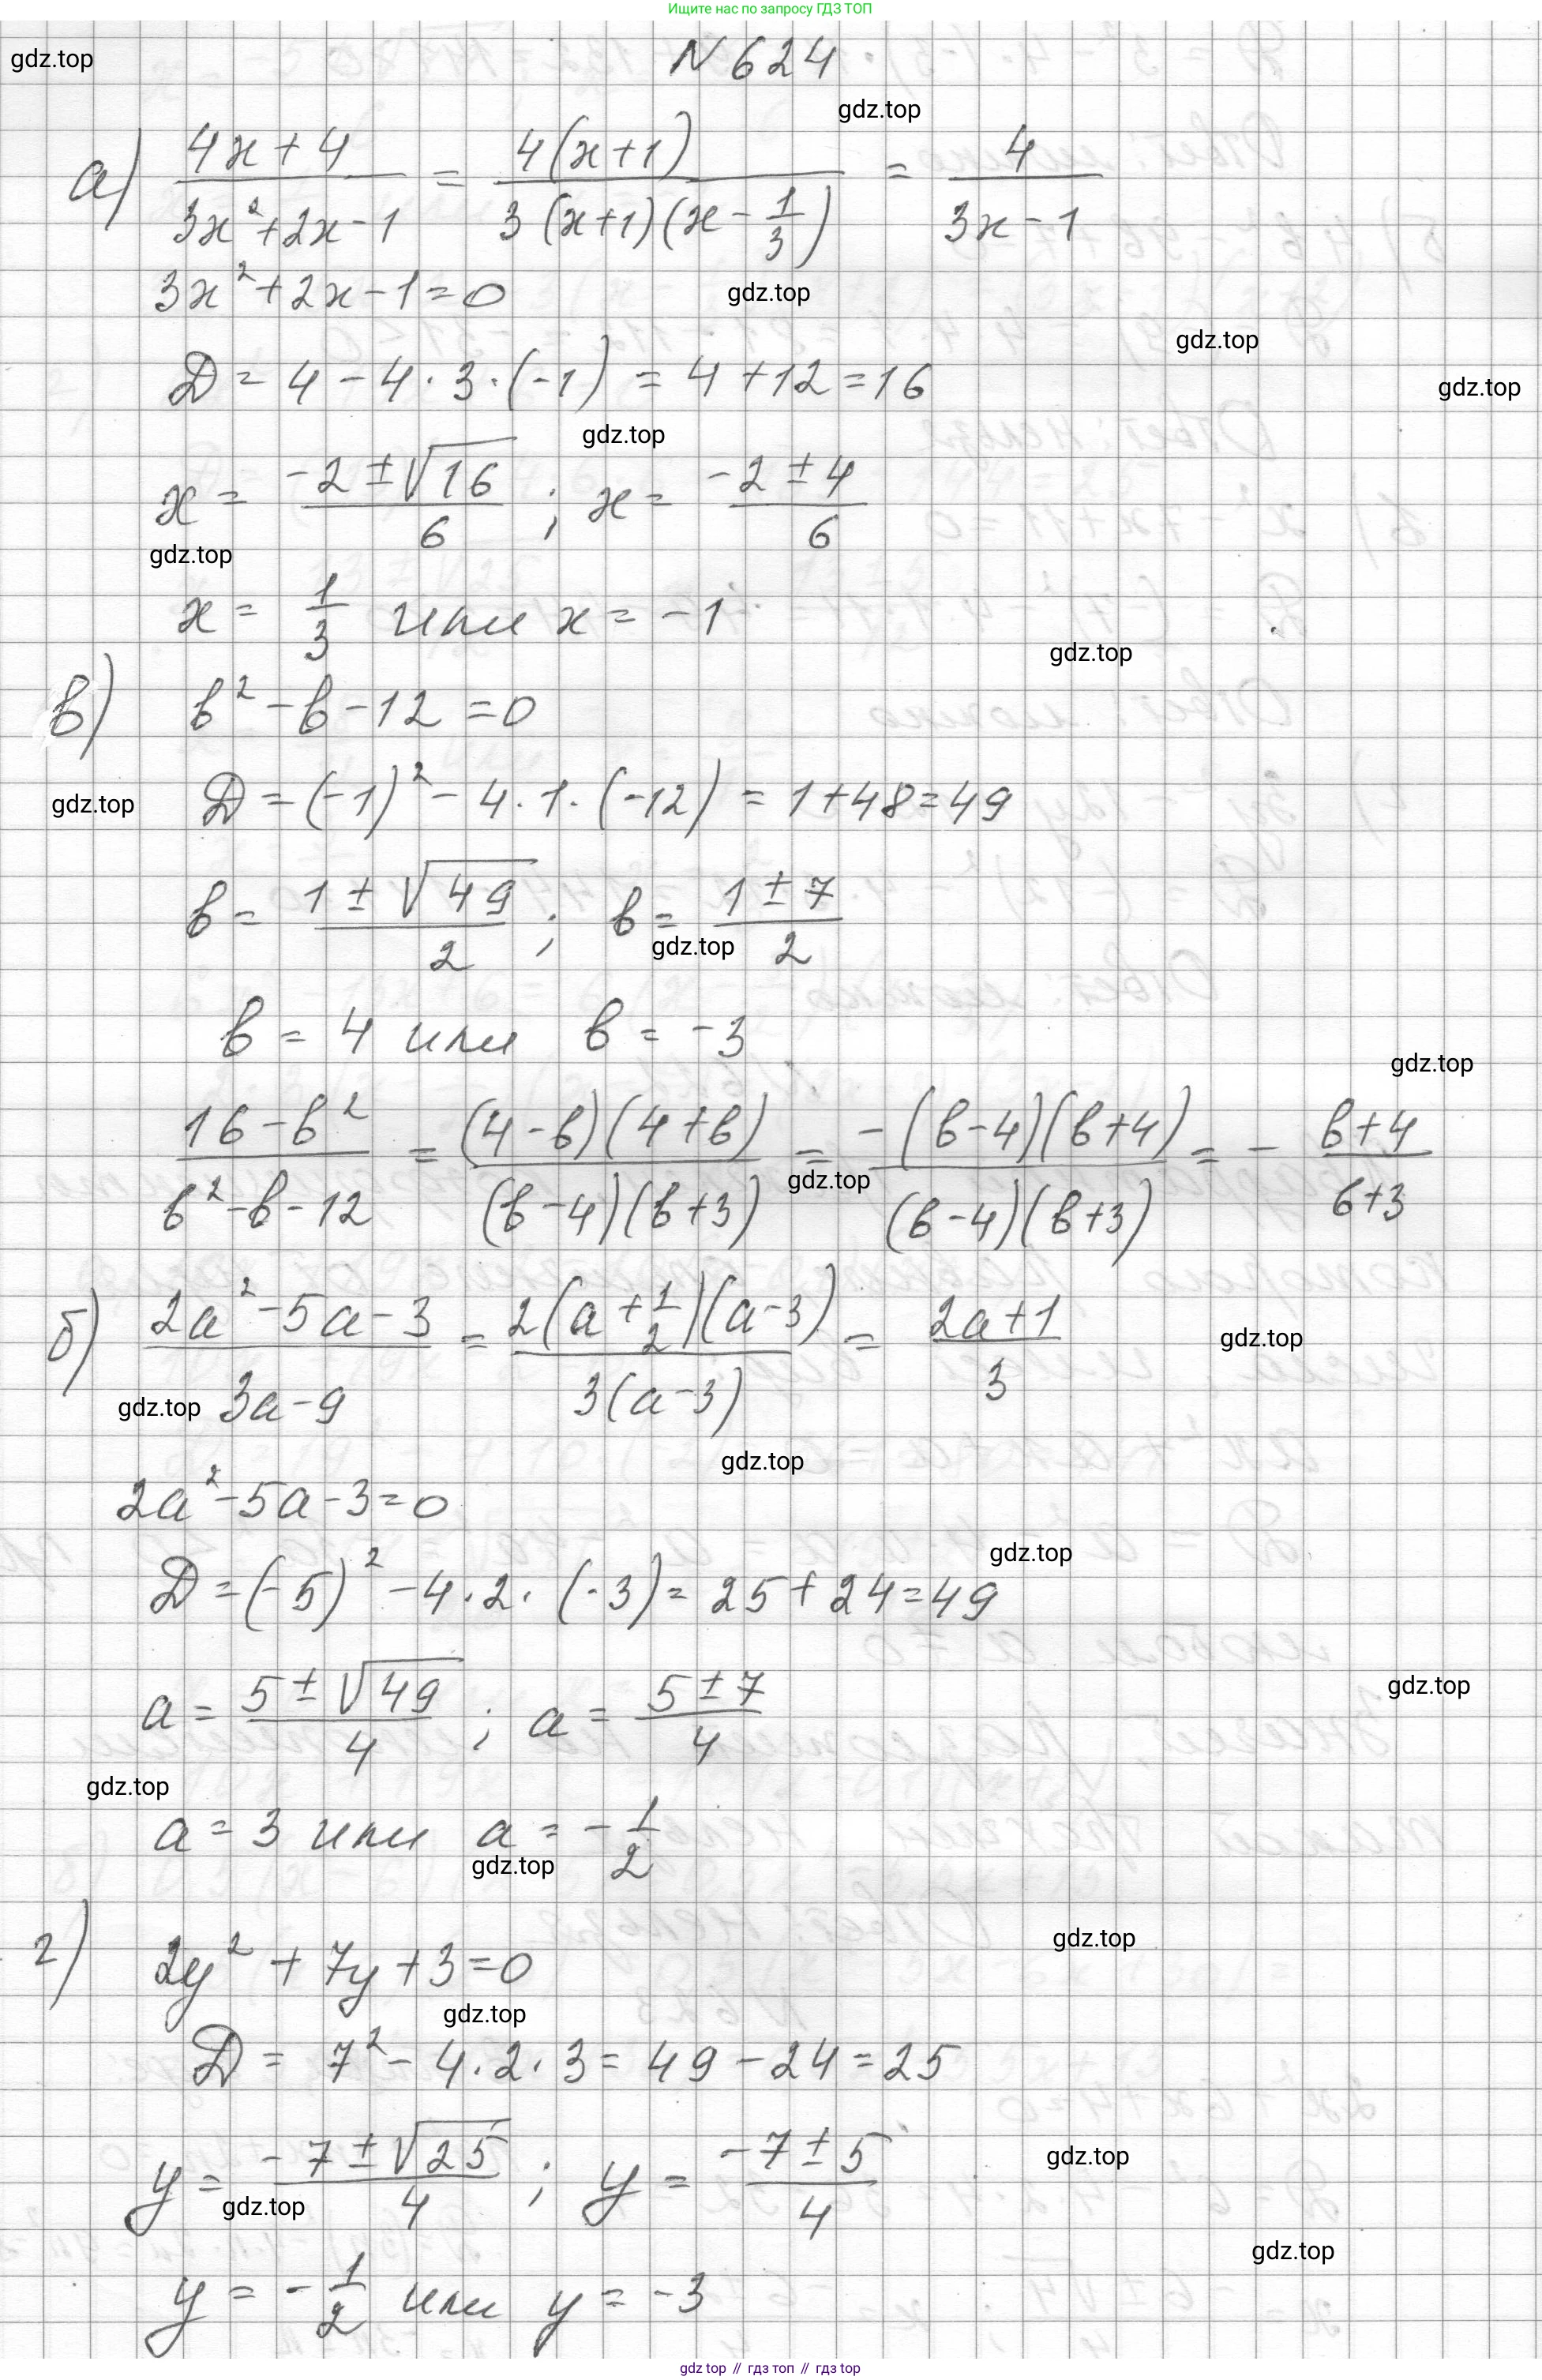 Ищите нас по запросу ГДЗ ТОП
N 624
gdz.top
gdz.top
а) (4x+4)/(3x²+2x-1) = 4(x+1)/(3(x+1)(x-1/3)) = 4/(3x-1)
3x²+2x-1=0
gdz.top
gdz.top
D = 4-4·3·(-1) = 4+12=16
gdz.top
gdz.top
x = (-2±√16)/6 ; x = (-2±4)/6
gdz.top
x = 1/3 или x = -1
gdz.top
в) в²-в-12=0
gdz.top
D = (-1)²-4·1·(-12) = 1+48=49
в = (1±√49)/2 ; в = (1±7)/2
gdz.top
в = 4 или в = -3
gdz.top
(16-в²)/(в²-в-12) = (4-в)(4+в)/((в-4)(в+3)) = -(в-4)(в+4)/((в-4)(в+3)) = - (в+4)/(в+3)
gdz.top
б) (2a²-5a-3)/(3a-9) = 2(a+1/2)(a-3)/(3(a-3)) = (2a+1)/3
gdz.top
gdz.top
gdz.top
2a²-5a-3=0
gdz.top
D = (-5)²-4·2·(-3) = 25+24=49
a = (5±√49)/4 ; a = (5±7)/4
gdz.top
gdz.top
a = 3 или a = -1/2
gdz.top
г) 2y²+7y+3=0
gdz.top
gdz.top
D = 7²-4·2·3 = 49-24=25
y = (-7±√25)/4 ; y = (-7±5)/4
gdz.top
gdz.top
gdz.top
y = -1/2 или y = -3
gdz top // гдз топ // гдз top